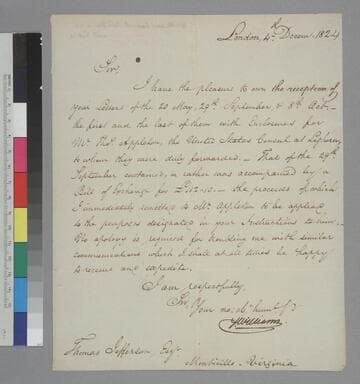 London, 4th Decem. 1824
Sir,
I have the pleasure to own the reception of
your Letters of the 20 May, 29th September & 8th Octr.
the first and the last of them with Enclosures for
Mr. Thos. Appleton, the United States Consul at Leghorn,
to whom they were duly forwarded. That of the 29th
September enclosed, or rather was accompanied by a
Bill of Exchange for the proceeds of which
I immediately remitted to Mr. Appleton to be applied
to the purposes designated in your Instructions to him.
No apology is required for troubling me with similar
communications which I shall at all times be happy
to receive and expedite.
I am respectfully,
Sir, Your mo: ob. humb. St.
Williams
Thomas Jefferson Esqr.
Monticello, Virginia